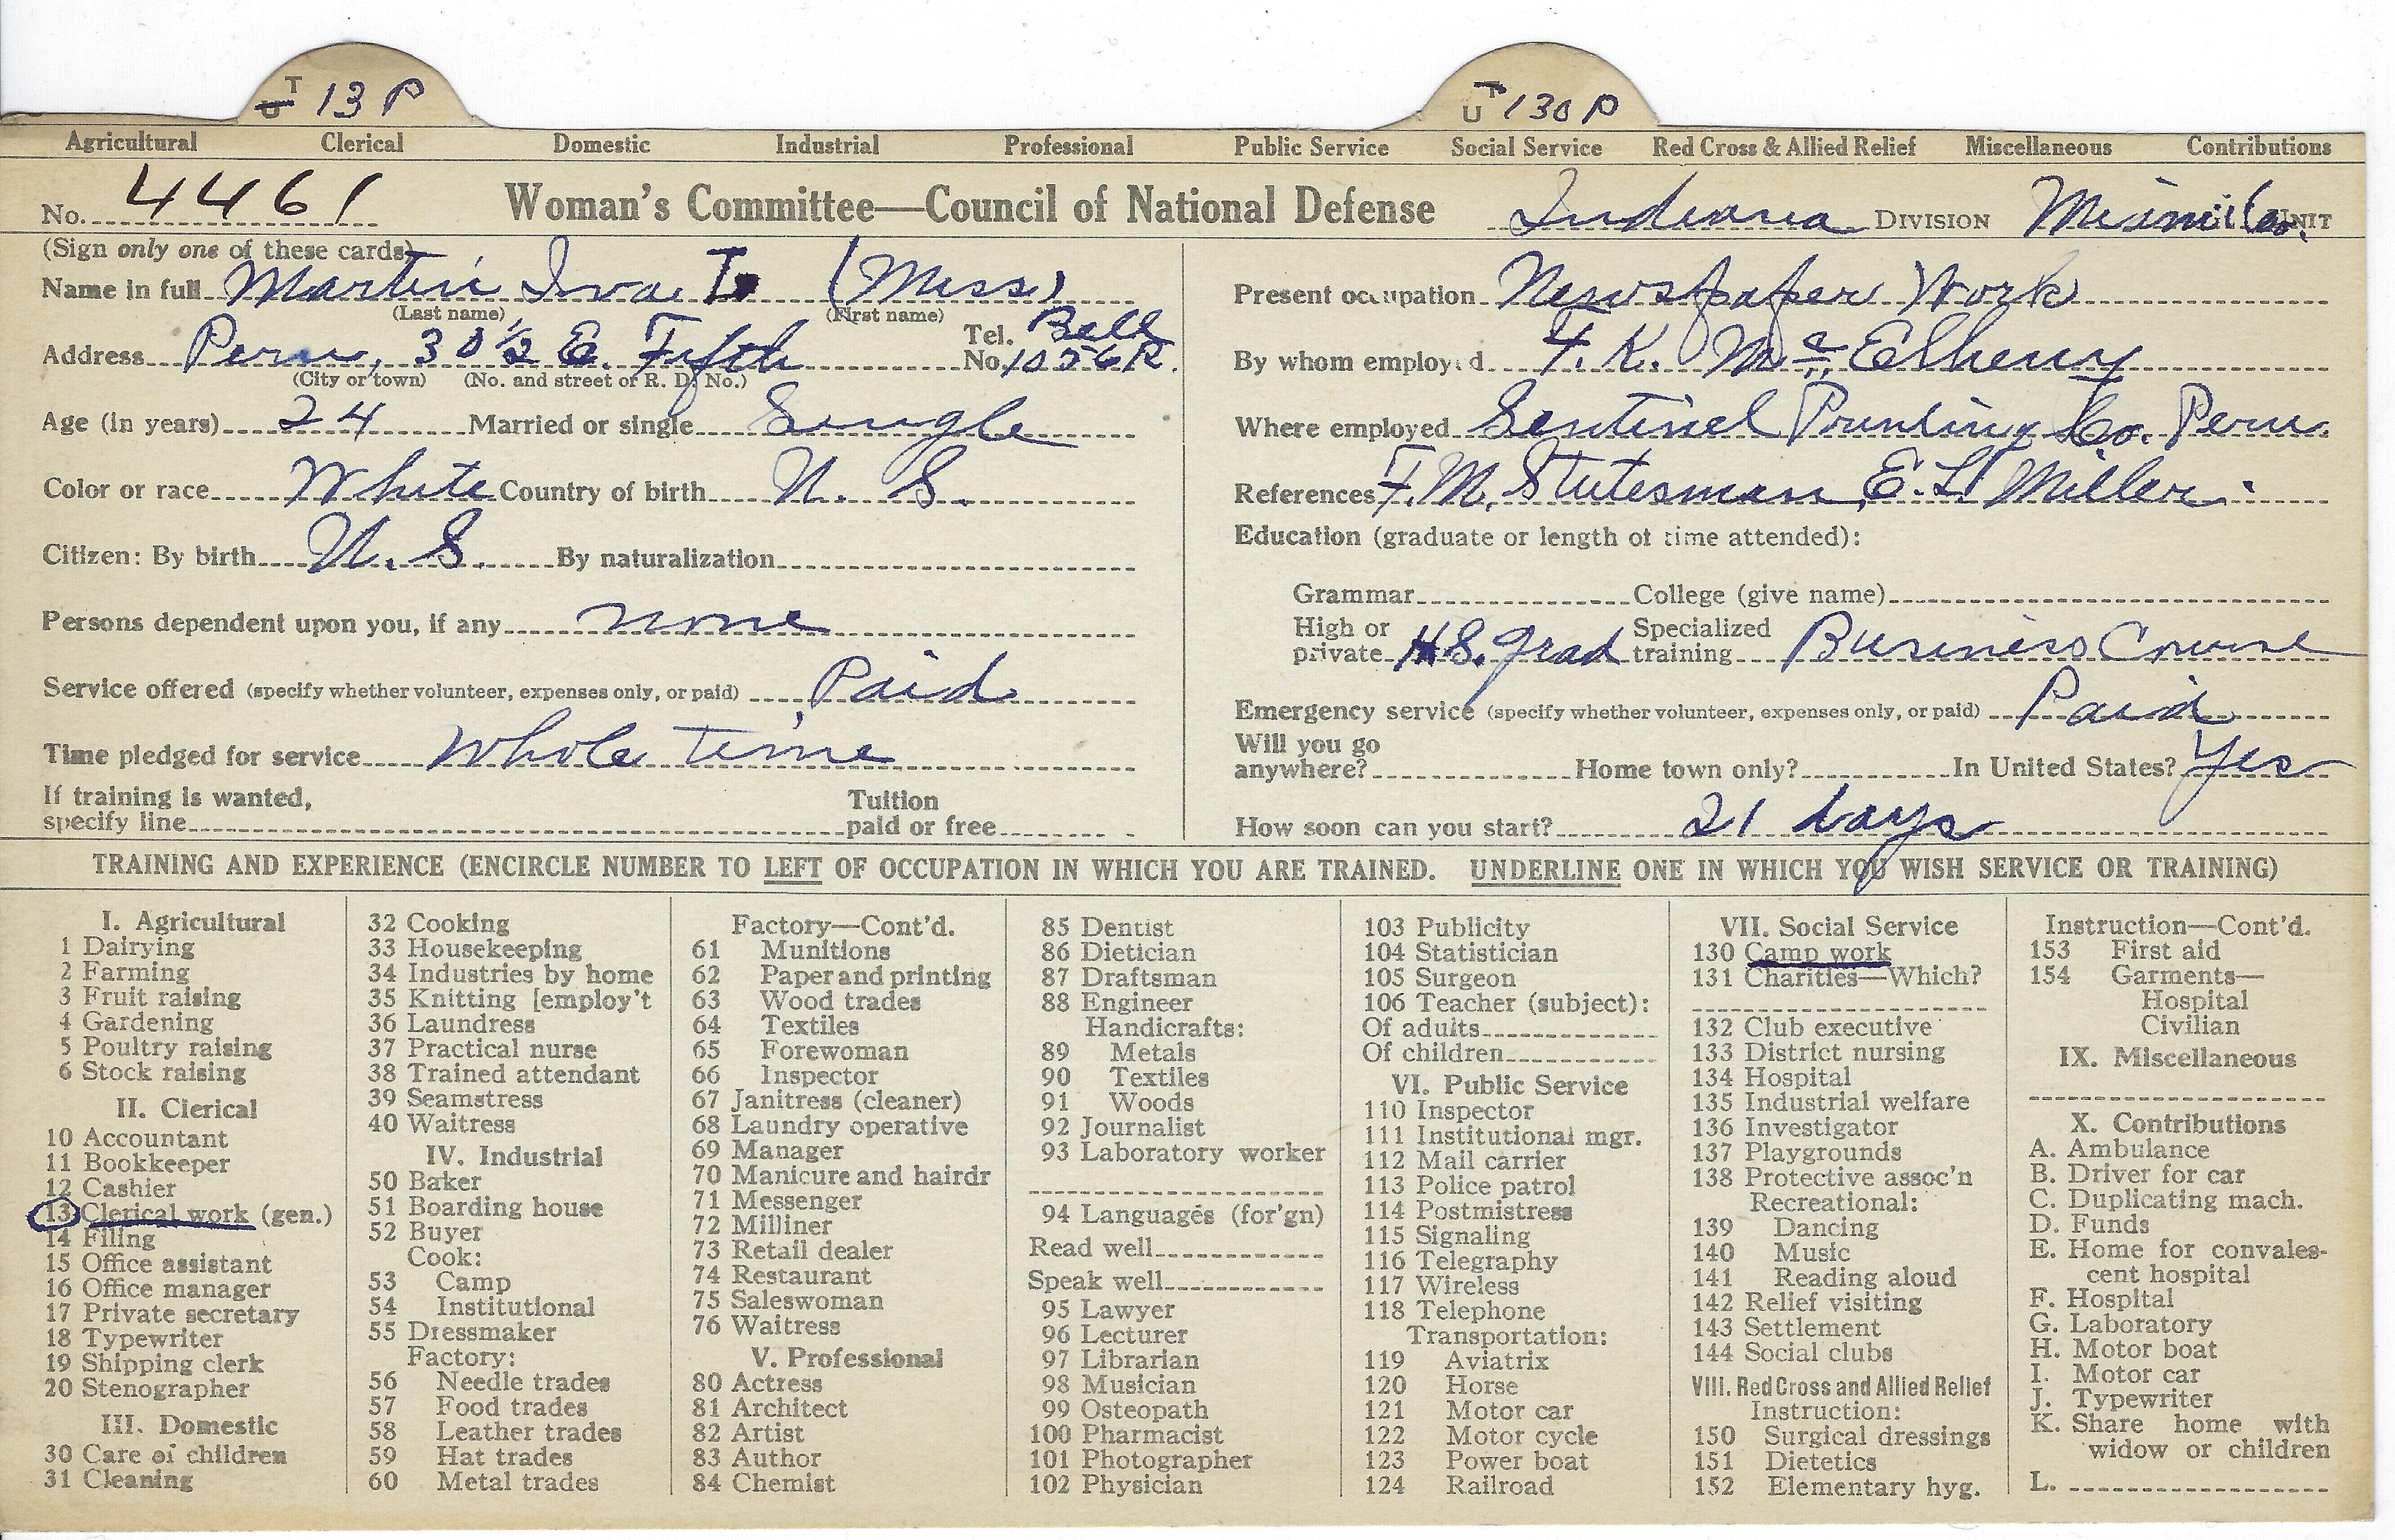 T U 13 P
T U 130 P
Agricultural Clerical Domestic Industrial Professional Public Service Social Service Red Cross & Allied Relief Miscellaneous Contributions
No. 4461 Woman's Committee—Council of National Defense Indiana DIVISION Miami Co. UNIT
(Sign only one of these cards)
Name in full Martin Iva (Miss)
(Last name) (First name)
Address Peru, 30 1/2 E. Fifth Tel. No. Bell 1056R.
(City or town) (No. and street or R. D. No.)
Age (in years) 24 Married or single Single
Color or race White Country of birth U. S.
Citizen: By birth U. S. By naturalization
Persons dependent upon you, if any none
Service offered (specify whether volunteer, expenses only, or paid) Paid
Time pledged for service Whole time
If training is wanted, Tuition
specify line paid or free
Present occupation Newspaper Work
By whom employed F. K. McElheny
Where employed Sentinel Printing Co. Peru.
References F. M. Stutesman, E. L. Miller.
Education (graduate or length of time attended):
Grammar College (give name)
High or private H.S. grad Specialized training Business Course
Emergency service (specify whether volunteer, expenses only, or paid) Paid
Will you go anywhere? Home town only? In United States? Yes
How soon can you start? 21 days
TRAINING AND EXPERIENCE (ENCIRCLE NUMBER TO LEFT OF OCCUPATION IN WHICH YOU ARE TRAINED. UNDERLINE ONE IN WHICH YOU WISH SERVICE OR TRAINING)
I. Agricultural
1 Dairying
2 Farming
3 Fruit raising
4 Gardening
5 Poultry raising
6 Stock raising
II. Clerical
10 Accountant
11 Bookkeeper
12 Cashier
13 Clerical work (gen.)
14 Filing
15 Office assistant
16 Office manager
17 Private secretary
18 Typewriter
19 Shipping clerk
20 Stenographer
III. Domestic
30 Care of children
31 Cleaning
32 Cooking
33 Housekeeping
34 Industries by home
35 Knitting [employ't
36 Laundress
37 Practical nurse
38 Trained attendant
39 Seamstress
40 Waitress
IV. Industrial
50 Baker
51 Boarding house
52 Buyer
Cook:
53 Camp
54 Institutional
55 Dressmaker
Factory:
56 Needle trades
57 Food trades
58 Leather trades
59 Hat trades
60 Metal trades
Factory—Cont'd.
61 Munitions
62 Paper and printing
63 Wood trades
64 Textiles
65 Forewoman
66 Inspector
67 Janitress (cleaner)
68 Laundry operative
69 Manager
70 Manicure and hairdr
71 Messenger
72 Milliner
73 Retail dealer
74 Restaurant
75 Saleswoman
76 Waitress
V. Professional
80 Actress
81 Architect
82 Artist
83 Author
84 Chemist
85 Dentist
86 Dietician
87 Draftsman
88 Engineer
Handicrafts:
89 Metals
90 Textiles
91 Woods
92 Journalist
93 Laboratory worker
94 Languages (for'gn)
Read well
Speak well
95 Lawyer
96 Lecturer
97 Librarian
98 Musician
99 Osteopath
100 Pharmacist
101 Photographer
102 Physician
103 Publicity
104 Statistician
105 Surgeon
106 Teacher (subject):
Of adults
Of children
VI. Public Service
110 Inspector
111 Institutional mgr.
112 Mail carrier
113 Police patrol
114 Postmistress
115 Signaling
116 Telegraphy
117 Wireless
118 Telephone
Transportation:
119 Aviatrix
120 Horse
121 Motor car
122 Motor cycle
123 Power boat
124 Railroad
VII. Social Service
130 Camp work
131 Charities—Which?
132 Club executive
133 District nursing
134 Hospital
135 Industrial welfare
136 Investigator
137 Playgrounds
138 Protective assoc'n
Recreational:
139 Dancing
140 Music
141 Reading aloud
142 Relief visiting
143 Settlement
144 Social clubs
VIII. Red Cross and Allied Relief
Instruction:
150 Surgical dressings
151 Dietetics
152 Elementary hyg.
Instruction—Cont'd.
153 First aid
154 Garments—
Hospital
Civilian
IX. Miscellaneous
X. Contributions
A. Ambulance
B. Driver for car
C. Duplicating mach.
D. Funds
E. Home for convales-
cent hospital
F. Hospital
G. Laboratory
H. Motor boat
I. Motor car
J. Typewriter
K. Share home with
widow or children
L.